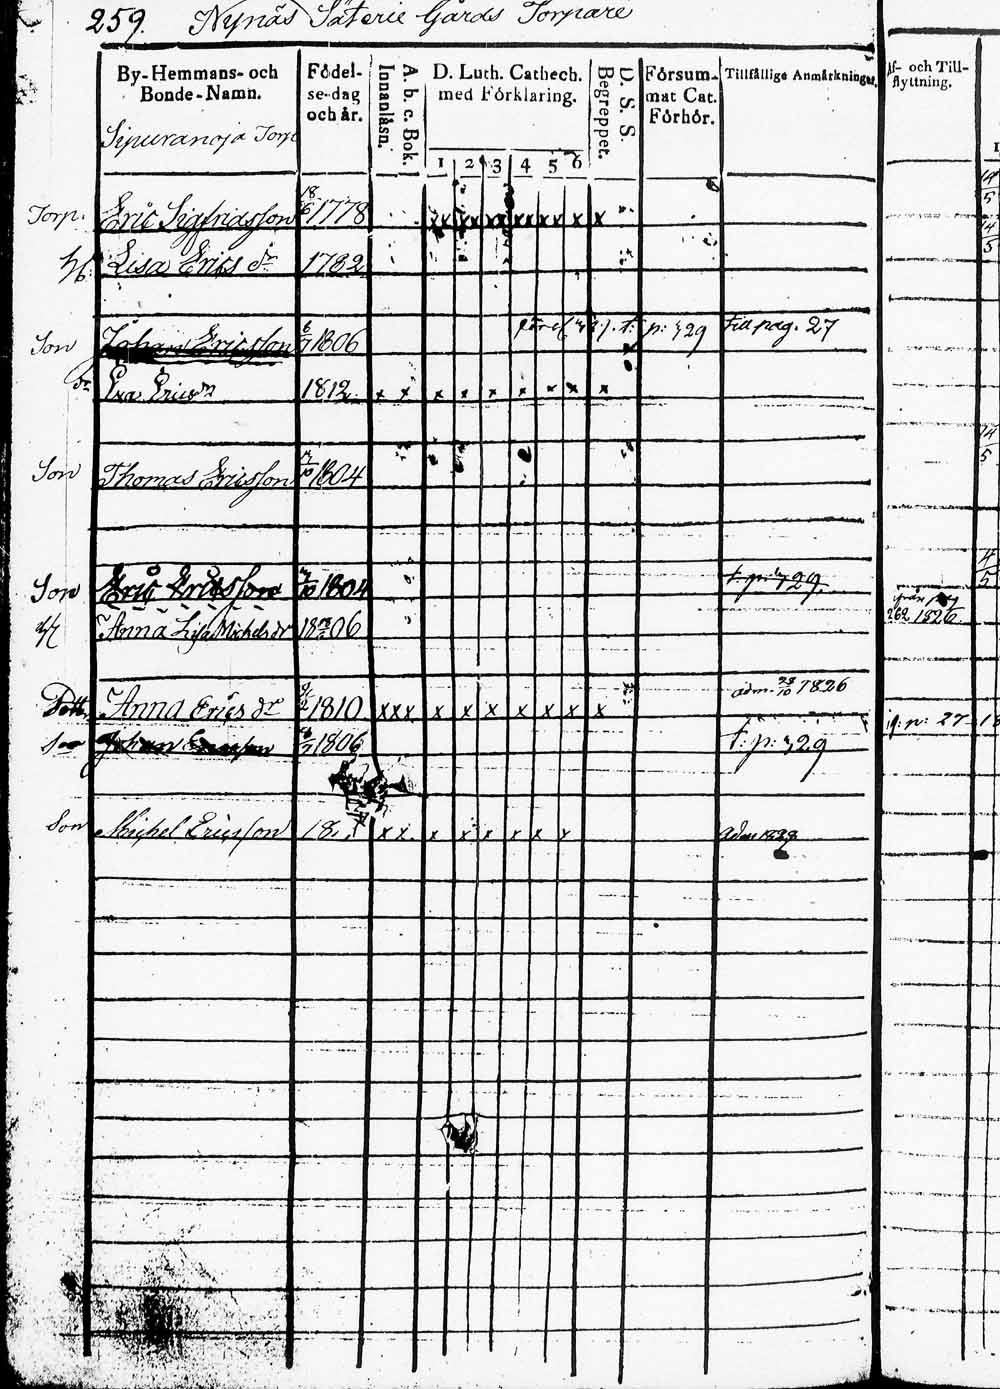 259. Nynäs Säterie Gårds Torpare
By-Hemmans- och Bonde-Namn.
Födel-se-dag och år.
Innanläsn.
A. b. c. Bok.
D. Luth. Cathech. med Förklaring.
1 2 3 4 5 6
Begreppet.
D. S. S.
Försum-mat Cat. Förhör.
Tillfällige Anmärkningar.
Af- och Till-flyttning.
Torp. Eric Sigfridsson 18/6 1778 x x x x x x x x x x x 14/5
h. Lisa Erics dr 1782 14/5
Son Johan Ericsson 6/7 1806 p: 729 till pag. 27
dr Eva Ericsdr 1812 x x x x x x x x x
Son Thomas Ericsson 1804 14/5
Son Eric Ericsson 1804 t. p: 729. 4/5
h Anna Lisa Michelsdr 1806 ifrån pag 262 1826
Dott. Anna Erics dr 1810 x x x x x x x x x x adm. 1826 p: 27
Son Johan Ericsson 6/7 1806 t: p: 729
Son Michel Ericsson 18 x x x x x x x x